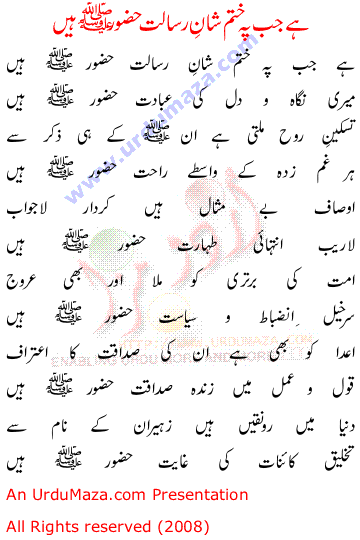 ہے جب پہ ختم شانِ رسالت حضور ﷺ ہیں
ہے جب پہ ختم شانِ رسالت حضور ﷺ ہیں
میری نگاہ و دل کی عبادت حضور ﷺ ہیں
تسکینِ روح ملتی ہے ان ﷺ کے ہی ذکر سے
ہر غم زدہ کے واسطے راحت حضور ﷺ ہیں
اوصاف بے مثال ہیں کردار لاجواب
لاریب انتہائی طہارت حضور ﷺ ہیں
امت کی برتری کو ملا اور بھی عروج
سرخیل ِانضباط و سیاست حضور ﷺ ہیں
اعدا کو بھی ہے ان کی صداقت کا اعتراف
قول و عمل میں زندہ صداقت حضور ﷺ ہیں
دنیا میں رونقیں ہیں زہیران کے نام سے
تخلیق کائنات کی غایت حضور ﷺ ہیں
An UrduMaza.com Presentation
All Rights reserved (2008)
www.urdumaza.com
اردو مزا
HTTP://WWW.URDUMAZA.COM